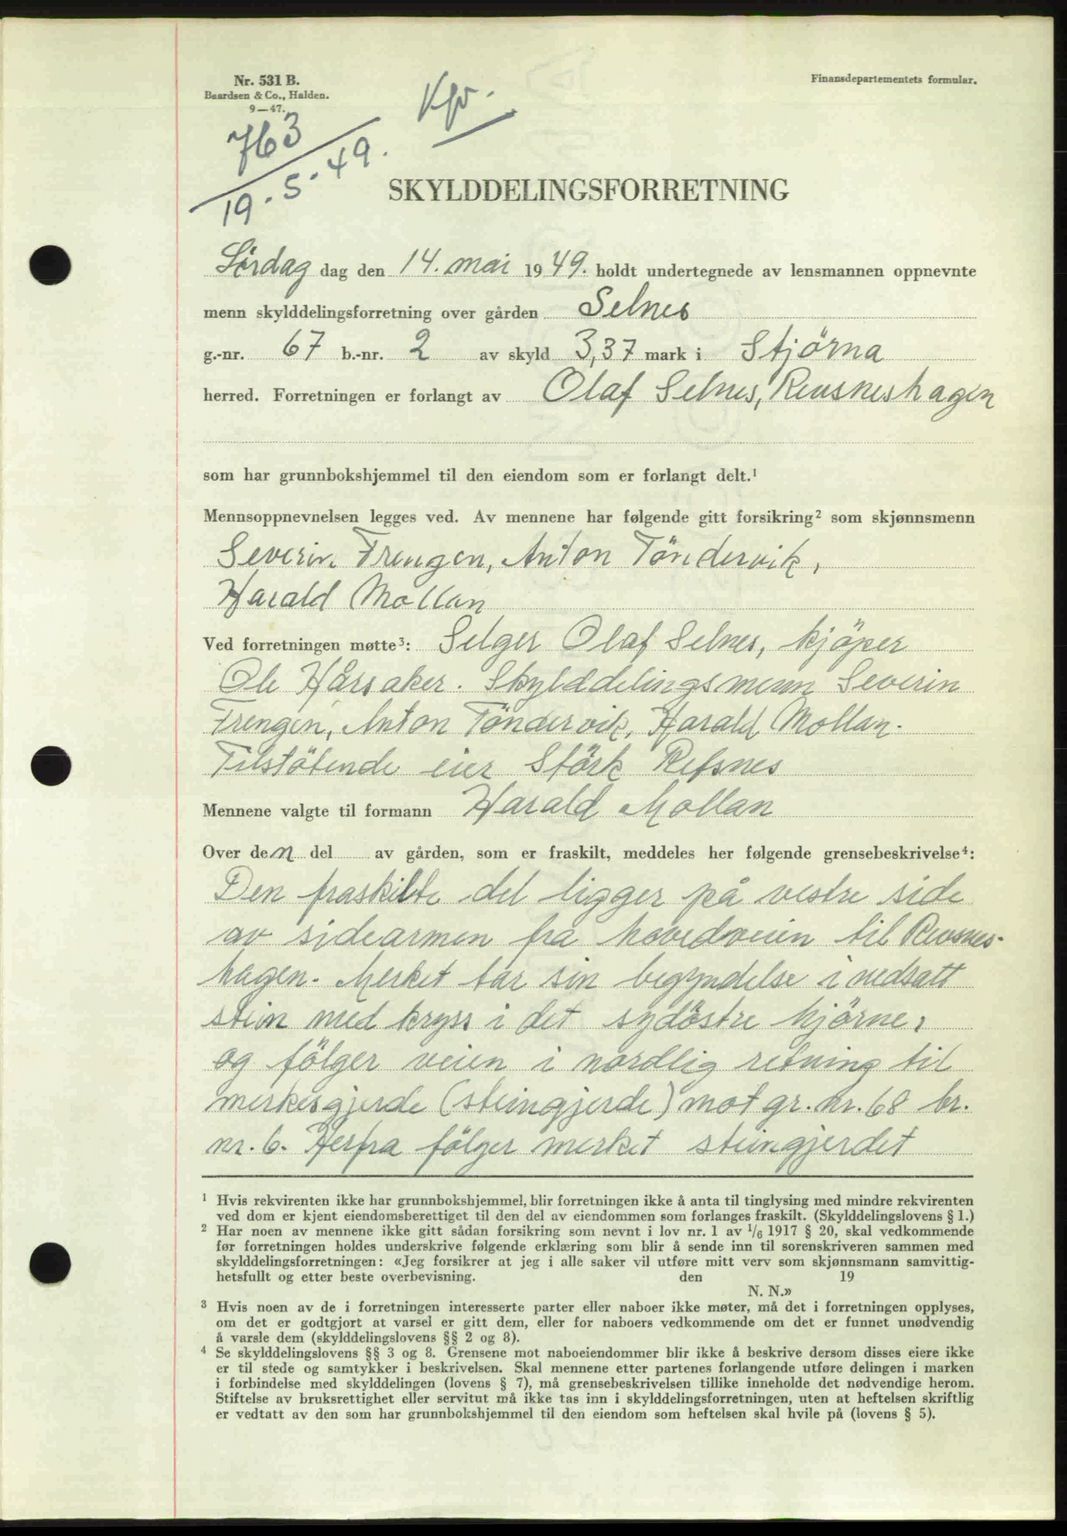 Nr. 531 B.
Baardsen & Co., Halden.
9—47.
Finansdepartementets formular.
Kfv.
763
19-5-49.
SKYLDDELINGSFORRETNING
Lördag dag den 14. mai 1949. holdt undertegnede av lensmannen oppnevnte
menn skylddelingsforretning over gården Selnes
g.-nr. 67 b.-nr. 2 av skyld 3,37 mark i Stjörna
herred. Forretningen er forlangt av Olaf Selnes, Reusneshagen
som har grunnbokshjemmel til den eiendom som er forlangt delt.¹
Mennsoppnevnelsen legges ved. Av mennene har følgende gitt forsikring² som skjønnsmenn
Severin Frengen, Anton Töndervik,
Harald Mollan
Ved forretningen møtte³: Selger Olaf Selnes, kjöper
Ole Hårsaker. Skylddelingsmenn Severin
Frengen, Anton Töndervik, Harald Mollan.
Tilstötende eier Störk Refsnes
Mennene valgte til formann Harald Mollan
Over den del av gården, som er fraskilt, meddeles her følgende grensebeskrivelse⁴:
Den fraskilte del ligger på vestre side
av sidearmen fra hovedveien til Reusnes-
hagen. Merket tar sin begyndelse i nedsatt
stein med kryss i det sydöstre hjörne,
og fölger veien i nordlig retning til
merkesgjerde (steingjerde) mot gr. nr. 68 br.
nr. 6. Herfra fölger merket steingjerdet
¹ Hvis rekvirenten ikke har grunnbokshjemmel, blir forretningen ikke å anta til tinglysing med mindre rekvirenten
ved dom er kjent eiendomsberettiget til den del av eiendommen som forlanges fraskilt. (Skylddelingslovens § 1.)
² Har noen av mennene ikke gitt sådan forsikring som nevnt i lov nr. 1 av 1/6 1917 § 20, skal vedkommende
før forretningen holdes underskrive følgende erklæring som blir å sende inn til sorenskriveren sammen med
skylddelingsforretningen: «Jeg forsikrer at jeg i alle saker vil utføre mitt verv som skjønnsmann samvittig-
hetsfullt og etter beste overbevisning. den 19
N. N.»
³ Hvis noen av de i forretningen interesserte parter eller naboer ikke møter, må det i forretningen opplyses,
om det er godtgjort at varsel er gitt dem, eller for naboers vedkommende om det er funnet unødvendig
å varsle dem (skylddelingslovens §§ 2 og 8).
⁴ Se skylddelingslovens §§ 3 og 8. Grensene mot naboeiendommer blir ikke å beskrive dersom disses eiere ikke
er til stede og samtykker i beskrivelsen. Skal mennene etter partenes forlangende utføre delingen i marken
i forbindelse med skylddelingen (lovens § 7), må grensebeskrivelsen tillike inneholde det nødvendige herom.
Stiftelse av bruksrettighet eller servitut må ikke tas inn i skylddelingsforretningen, uten at heftelsen skriftlig
er vedtatt av den som har grunnbokshjemmel til den eiendom som heftelsen skal hvile på (lovens § 5).